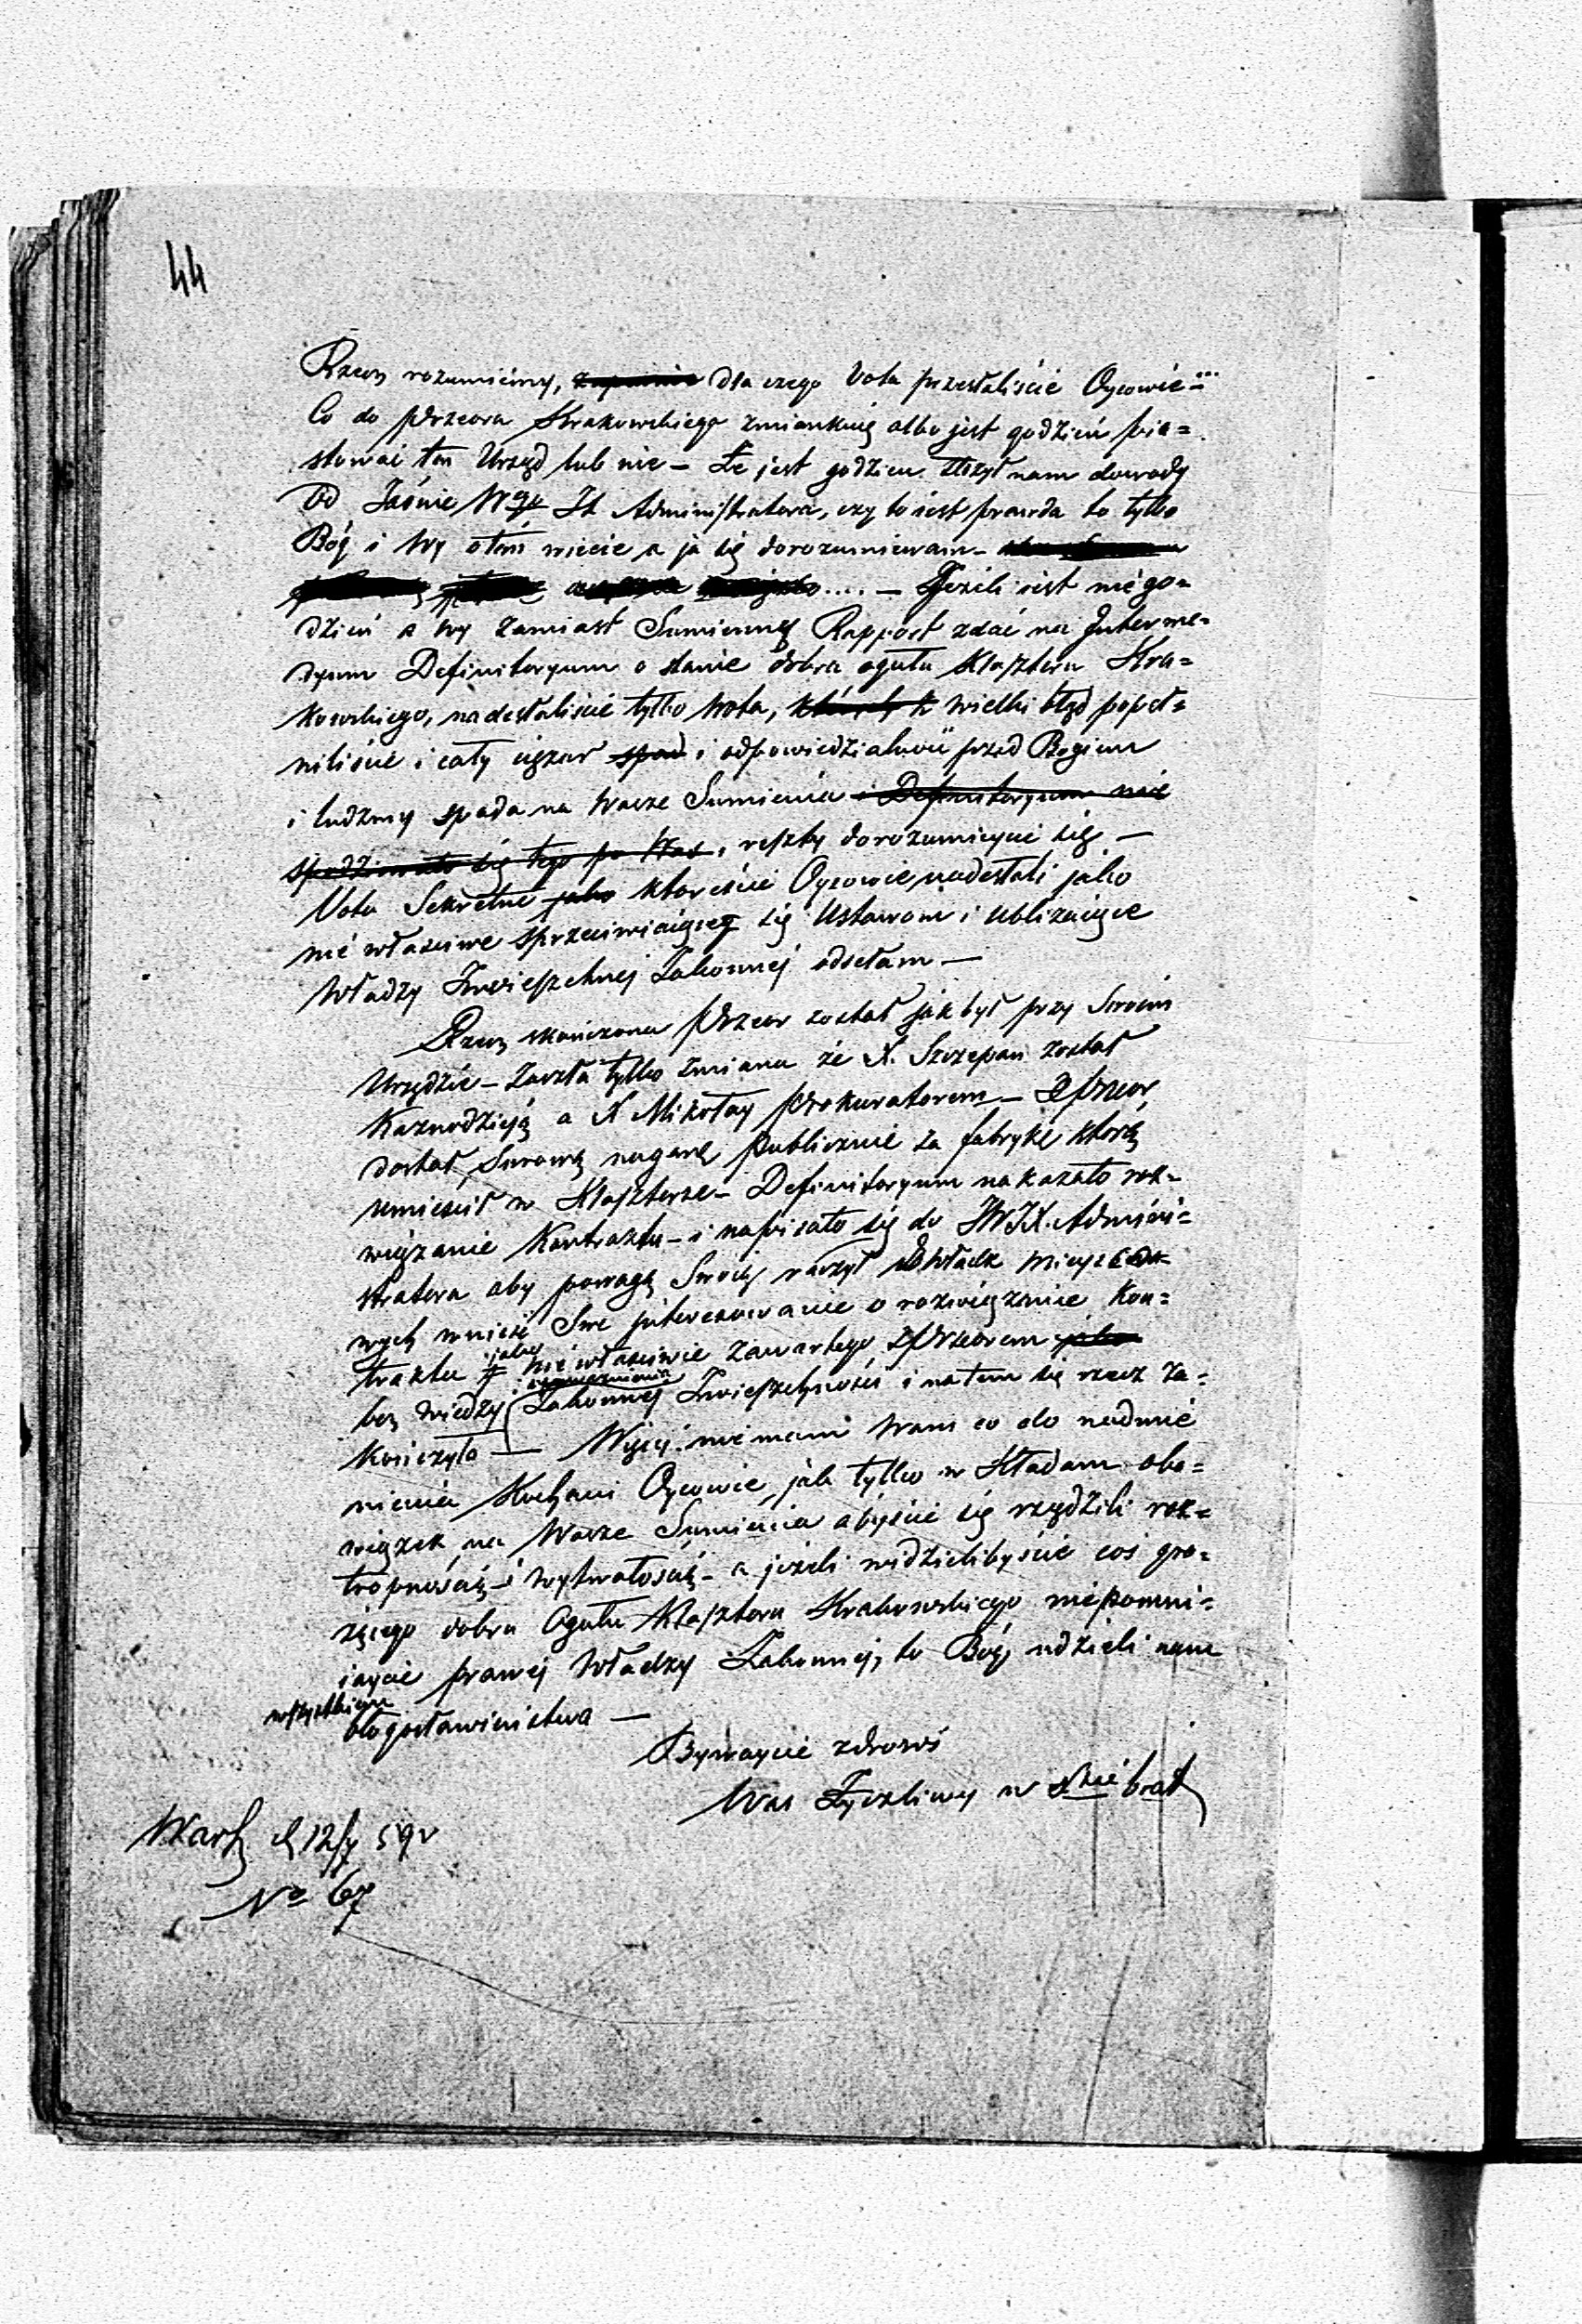 44
Rzecz rozumiémy, zapewnie dla czego Vota przesłaliście Oycowie...
Co do Przeora Krakowskiego zmiankuię albo jest godzień pia=
stować ten Urząd lub nie – Że jest godzien złożył nam dowody
Od Jaśnie Wgo Administratora, czy to iest prawda to tylko
Bóg i Wy otém wiecie a ja się dorozumiewam –
.... – Jeżeli iest niego=
dzień a wy zamiast Sumienny Rapport zdać na Interme=
dyum Definitoryum o stanie dobra ogułu Klasztoru Kra=
kowskiego, nadesłaliście tylko Wota, wielki błąd popeł=
niliście i cały ciężar spad i odpowiedzialność przed Bogiem
i ludźmy spada na Wasze Sumienia i Definitoryum nié
spodziewało się tego po Was, reszty dorozumieycie się –
Vota Sekretne jako któreście Oycowie nadesłali jako
nié właściwe sprzeciwiaiące się Ustawom i ubliżaiące
Władzy Zwierzchnej Zakonnéj odsełam –
Rzecz skończona Przeor został jak był przy Swoim
Urzędzie – Zaszła tylko zmiana że X. Szczepan został
Kaznodzieją a X Mikołay Prokuratorem – Przeor
dostał Surową naganę publicznie za fabrykę którą
umieścił w Klasztorze – Definitoryum nakazało roz=
wiązanie Kontraktu – i napisało się do JWJX. Admini=
stratora aby powagą Swoią raczył Władz mieysco=
wych wnieść Swe interesowanie o rozwiązanie Kon=
traktu jako nié właściwie zawartego z Przeorem jako
bez wiedzy Zakonnéj Zwierzchności i natem się rzecz za=
kończyła – Więcej niémam Wam co do nadmié
nienia Kochani Oycowie, jak tylko w Kładam obo=
wiązek na Wasze Sumienia abyście się rządzili roz=
tropnością – i wytrwałością – a jeżeli widzielibyście coś gro=
żącego dobru Ogułu Klasztoru Krakowskiego niépomni=
iaycie prawéj Władzy Zakonnéj, to Bóg udzieli nam
wszystkiem
błogosławieństwa –
Bywaycie zdrowi
Was Życzliwy w brat
d 12/7 59 r
No 67